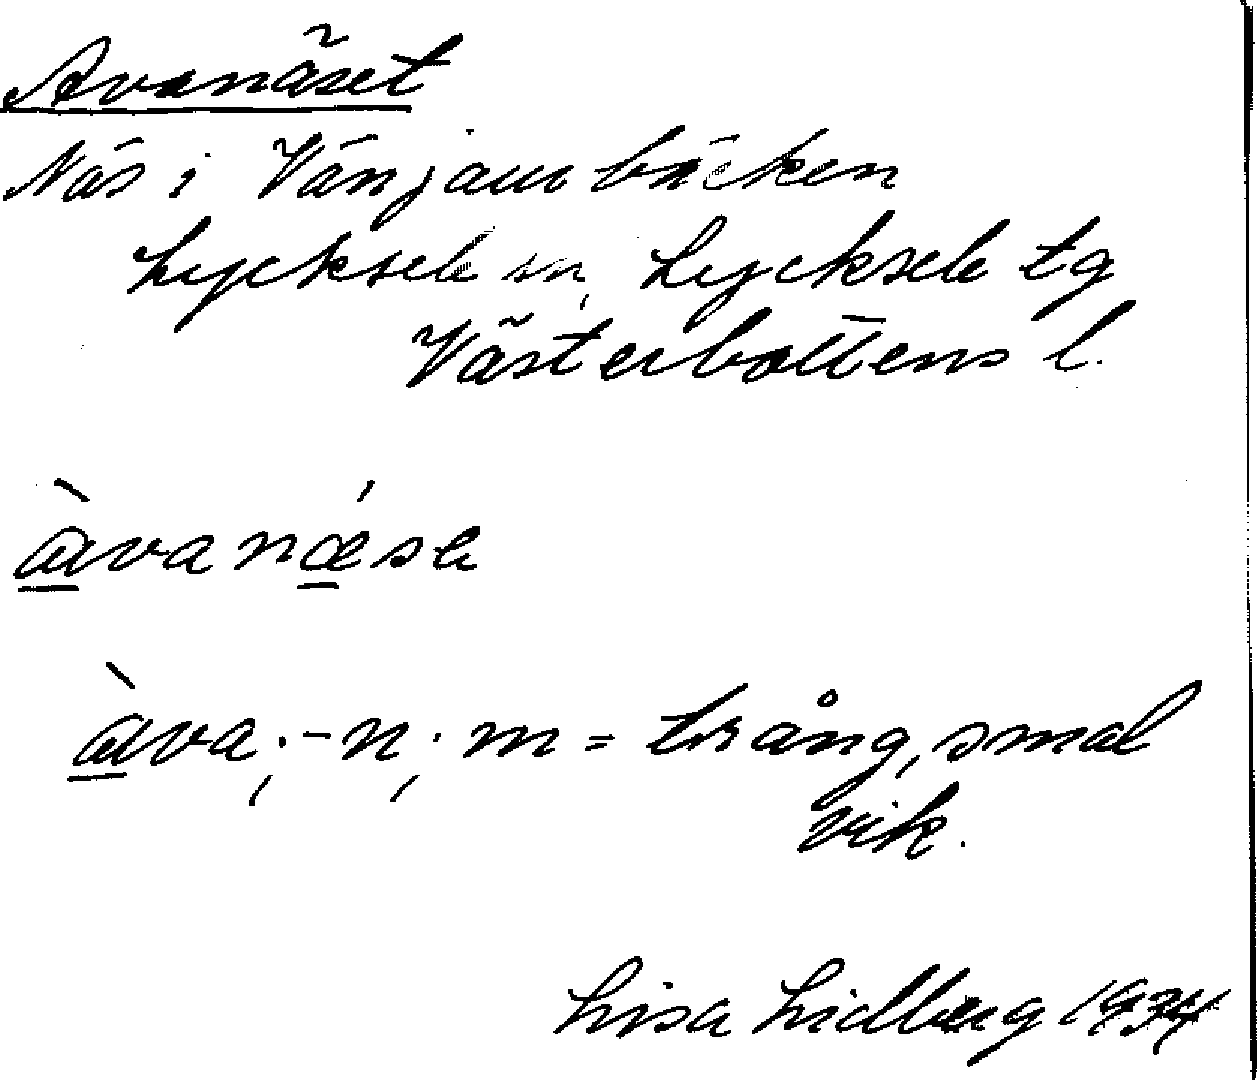 Avanäset
Näs i Vänjaurbäcken
Lycksele sn, Lycksele tg
Västerbottens l.
àvanǽsɐ
àva; -n; m = trång, smal
vik.
Lisa Lidberg 1934